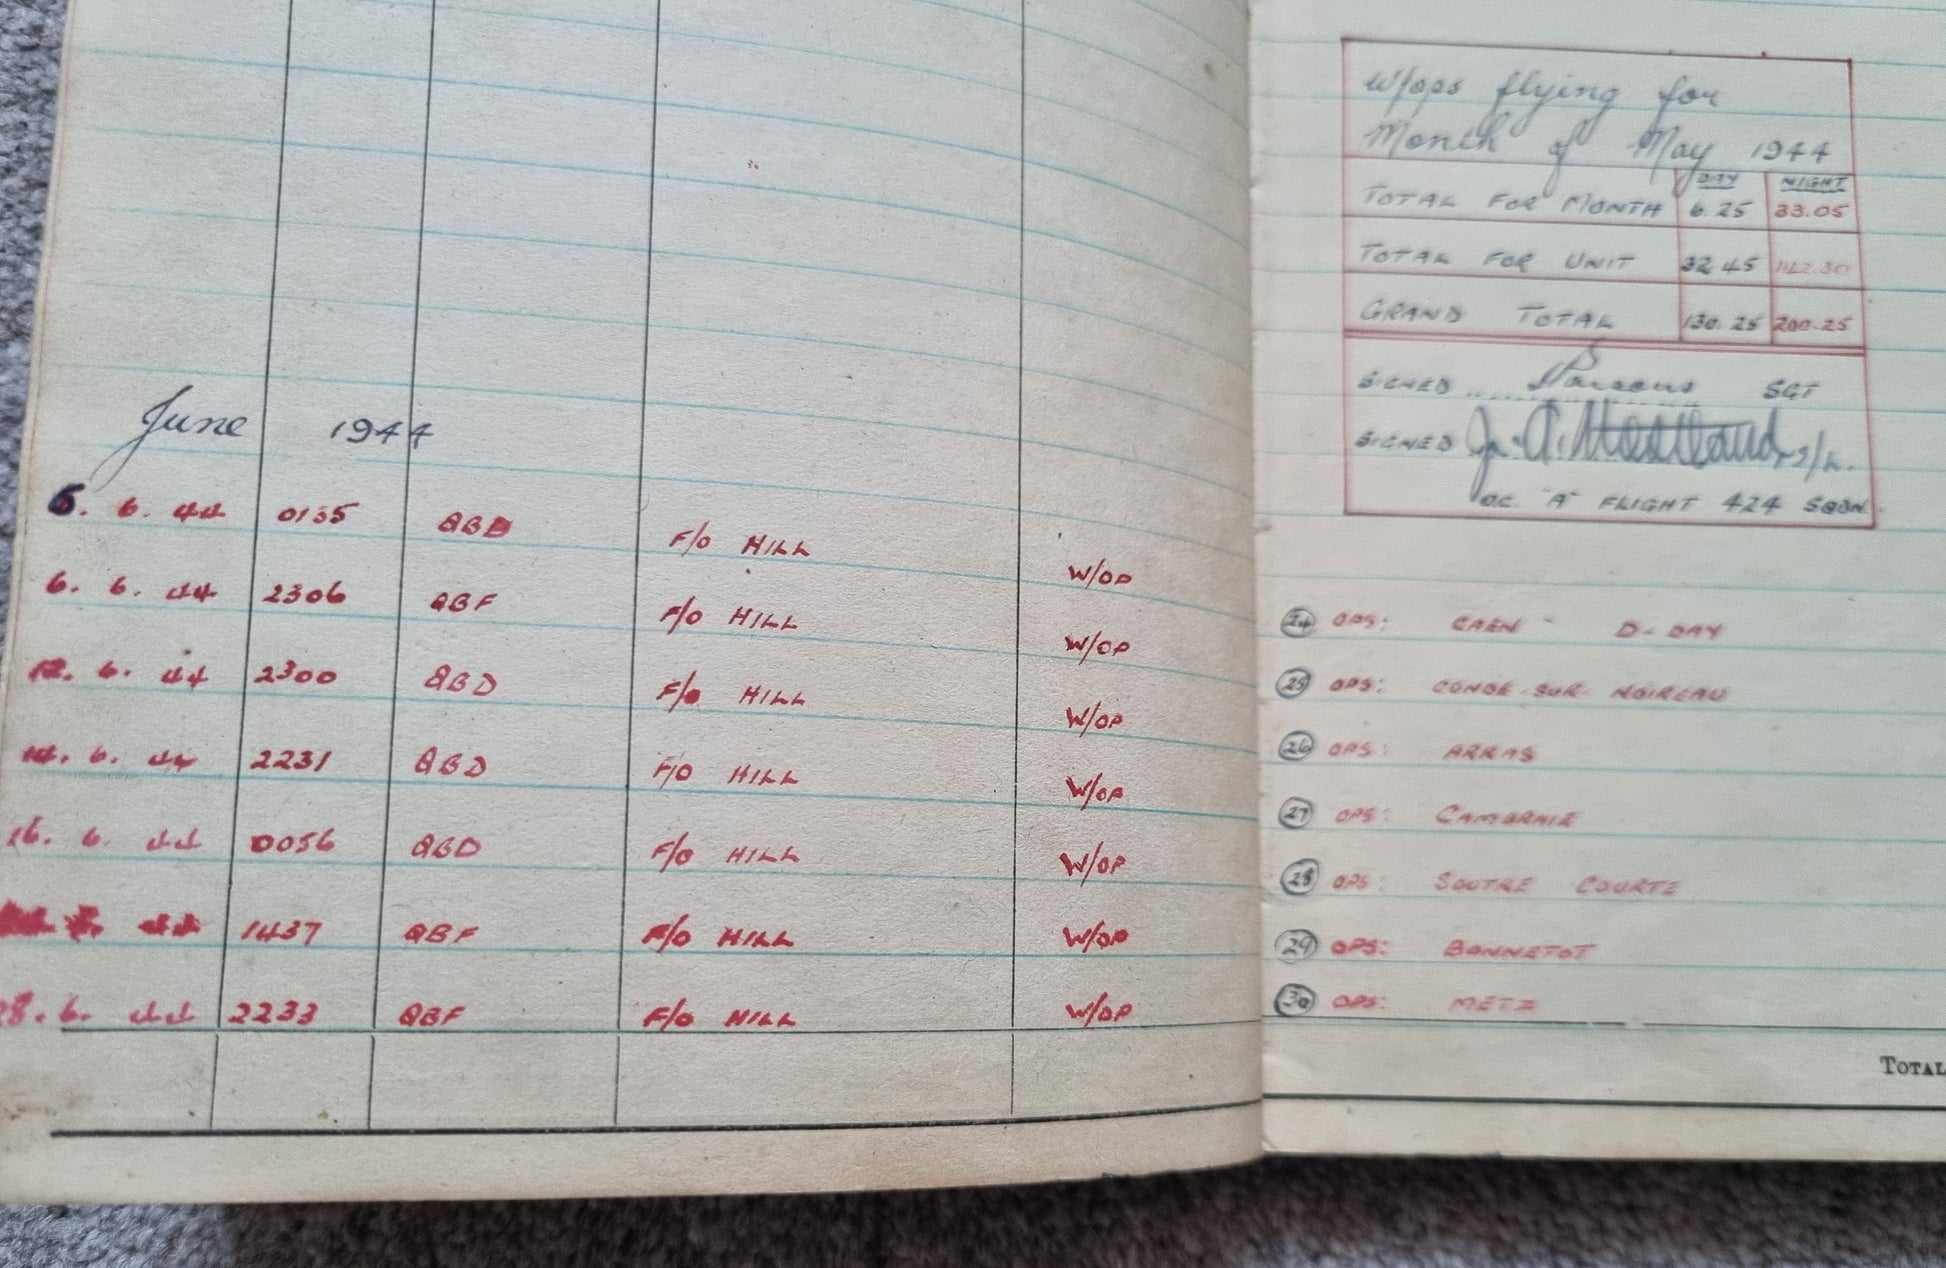 June 1944
6. 6. 44 0135 QBD F/O HILL W/OP
6. 6. 44 2306 QBF F/O HILL W/OP
12. 6. 44 2300 QBD F/O HILL W/OP
14. 6. 44 2231 QBD F/O HILL W/OP
16. 6. 44 0056 QBD F/O HILL W/OP
44 1437 QBF F/O HILL W/OP
28. 6. 44 2233 QBF F/O HILL W/OP
W/ops flying for
Month of May 1944
DAY NIGHT
TOTAL FOR MONTH 6.25 33.05
TOTAL FOR UNIT 32.45 142.30
GRAND TOTAL 130.25 200.25
SIGNED Parsons SGT
SIGNED S/L.
OC "A" FLIGHT 424 SQDN
24 OPS: CAEN - D-DAY
25 OPS: CONDE-SUR-NOIREAU
26 OPS: ARRAS
27 OPS: CAMBRAIE
28 OPS: SOUTRE COURTE
29 OPS: BONNETOT
30 OPS: METZ
TOTAL